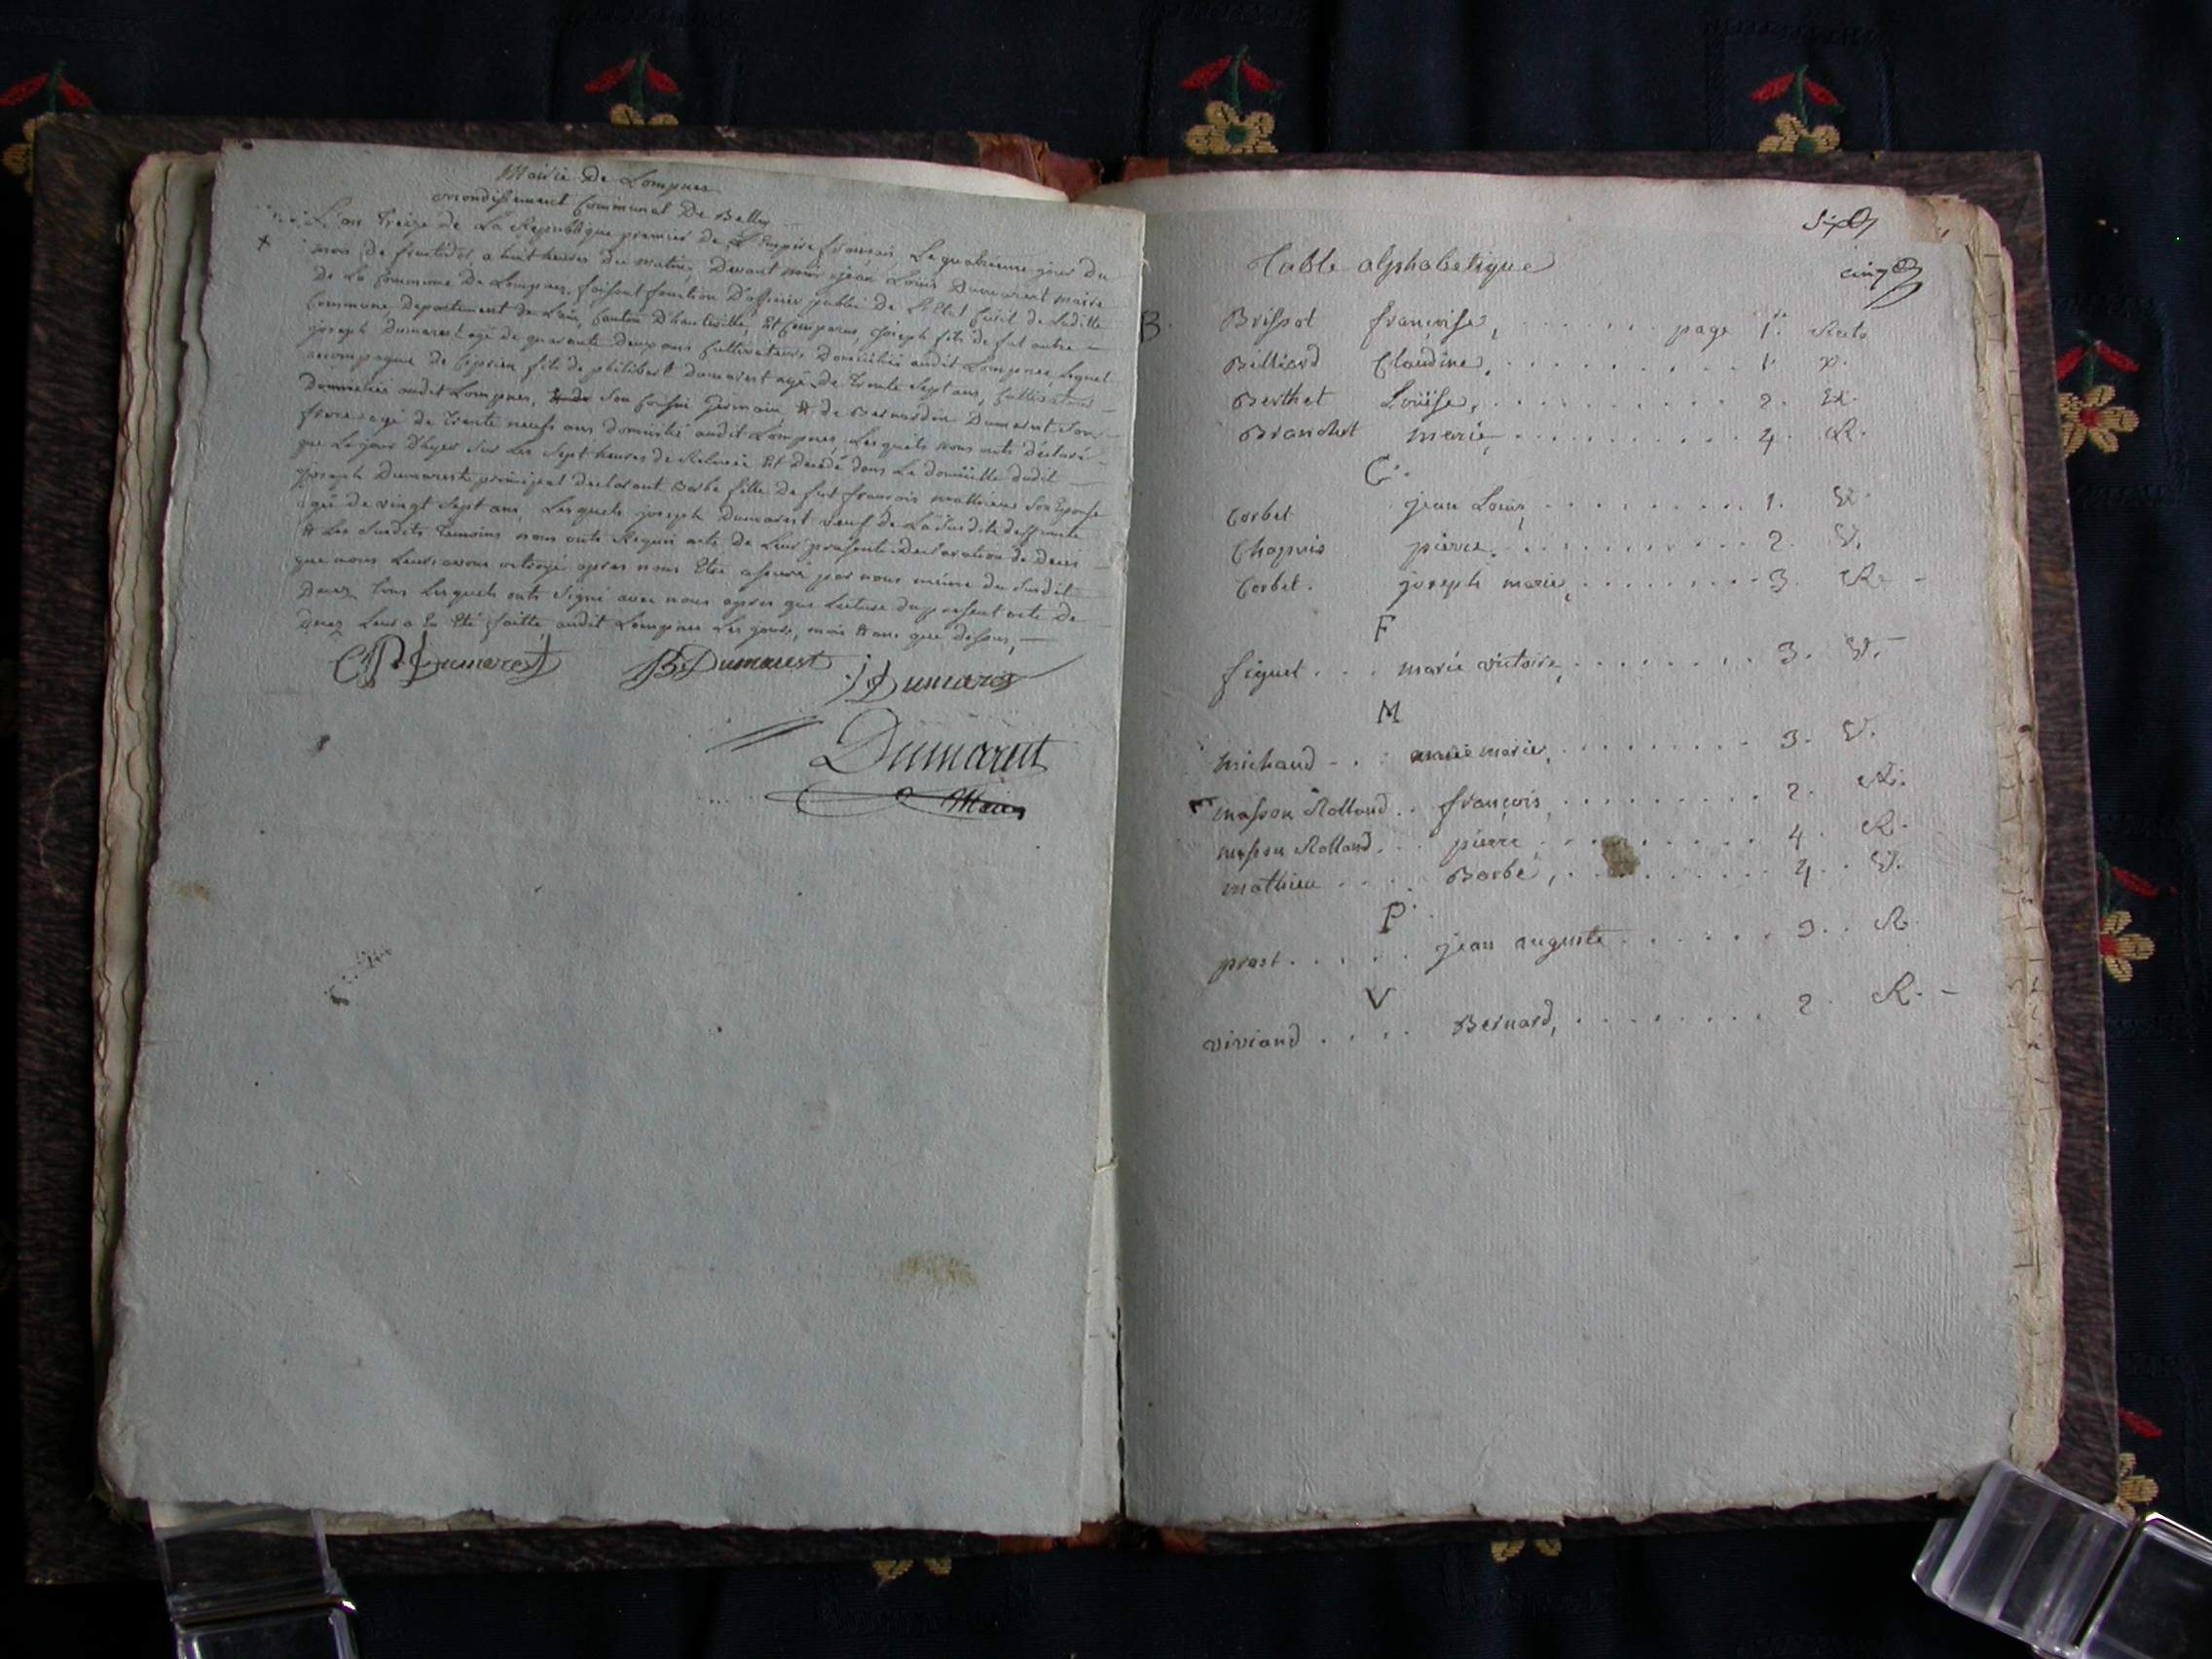 Mairie De Lompnes
arrondissement Communal De Belley
L'an treize de La Republique premier de L'Empire francais, Le quatrieme jour du
mois de fructidor, a huit heures du matin, Devant nous jean Loüis Dumarest maire
de La Commune De Lompnes, faisant fonction D'officier public De L'Etat Civil de laditte
Commune, Departement de L'ain, Canton D'hauteville, Est Comparus, joseph fils de fut autre
joseph Dumarest agé de quarante deux ans Cultivateur, Domicilié audit Lompnes, Lequel
accompagné de Ciprien fils de philibert Dumarest agé de trente Sept ans, Cultivateur
Domicilié audit Lompnes, Son Cousin Germain & de Bernardin Dumarest Son
frere agé de trente neuf ans domicilié audit Lompnes, Lesquels nous onts déclaré
que Le jour D'hyer Sur Les Sept heures de Relevée Est Decedé dans Le domicille dudit
joseph Dumarest principal declarant Barbe fille De fut francois Mathieu Son Epouse
agé de vingt Sept ans, Lesquels joseph Dumarest veuf de La Susdite deffunte
& Les Susdits temoins nous onts Requis acte de Leur presente Declaration de Deces
que nous Leurs avons octroyé apres nous Etre assuré par nous même du Susdit
Decez tous Lesquels onts Signé avec nous apres que Lecture du present acte de
Decez Leur a Eu Eté faitte audit Lompnes Les jours, mois & ans que dessus,
CP Dumarest BDumarest jDumarest
Dumarest
Maire
Six
Table alphabetique
cinq
B.
Brissot françoise, page 1re Recto
Billiard Claudine, 1 R.
Berthet Loüise, 2. V.
Branchet marie 4. R.
C.
Corbet jean Louis, 1. V.
Chapuis pierre, 2. V.
Corbet. joseph marie, 3. R.
F
figuet marie victoire, 3. V.
M
michaud marie, 3. V.
masson Rolland françois, 2. R.
masson Rolland pierre 4. R.
mathieu Barbe, 4. V.
P
prost jean auguste 3. R
V
viviand Bernard, 2. R.